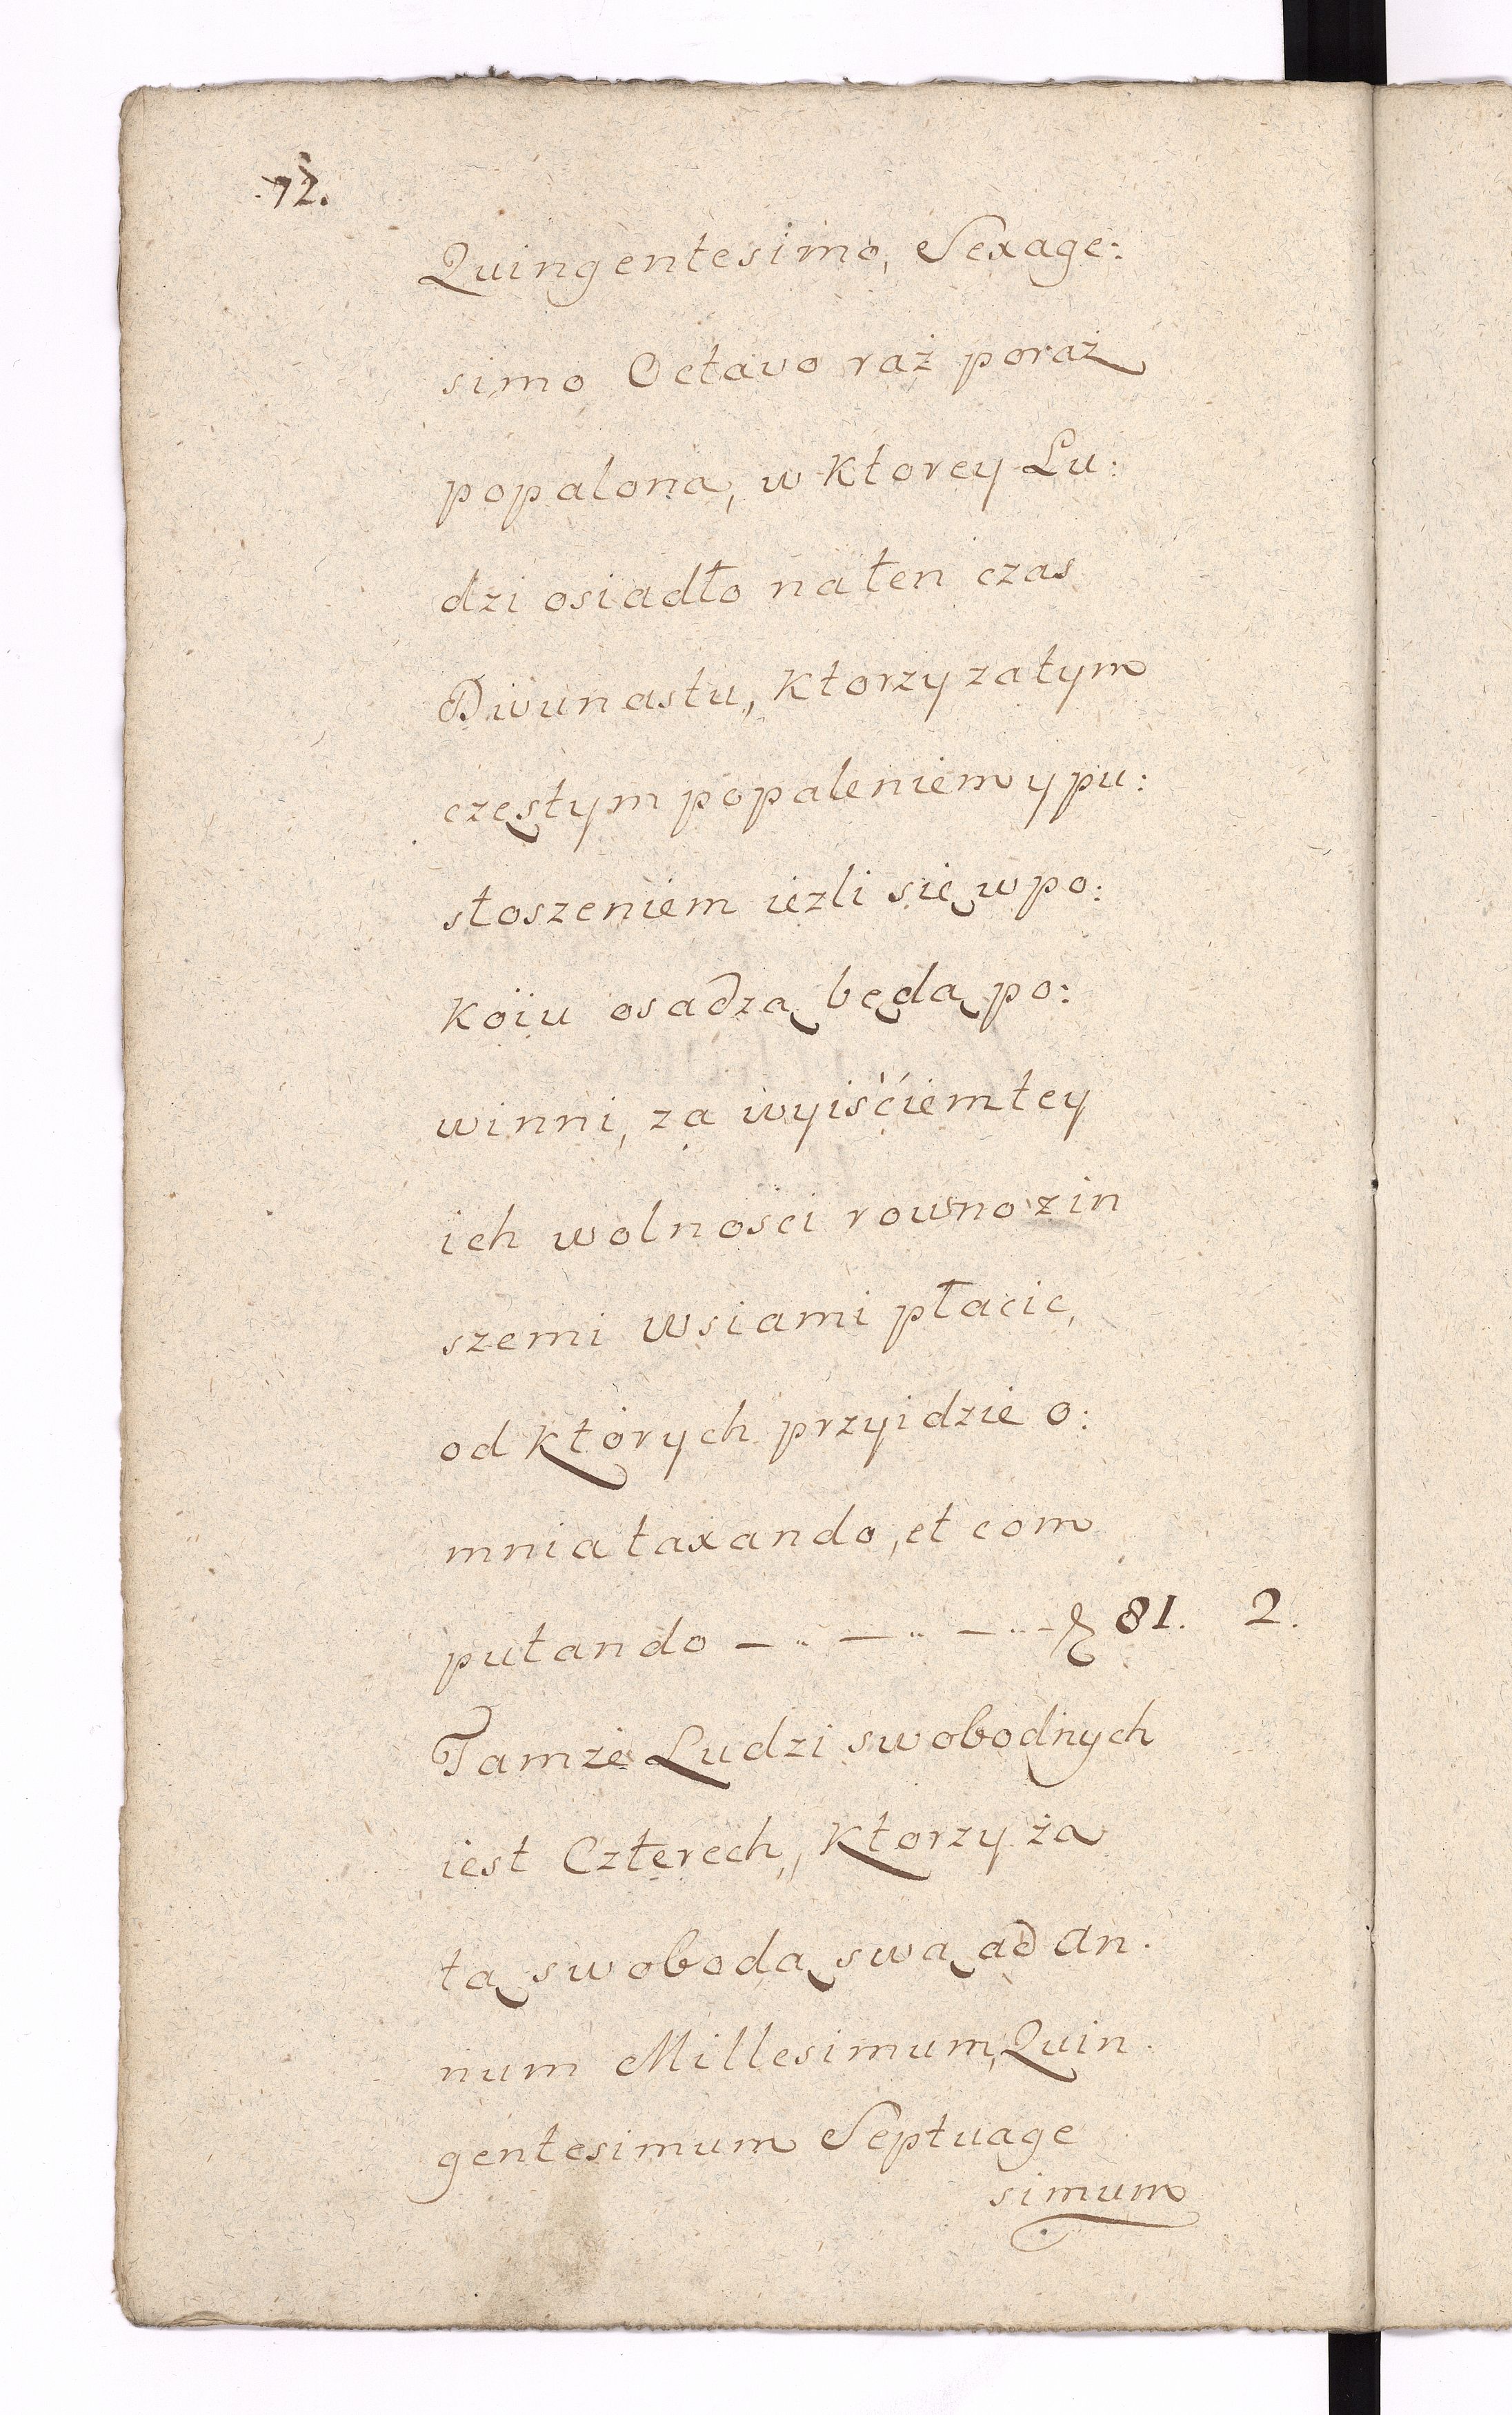 72.
Quingentesimo, Sexage:
simo Octavo raż poraż
popalona, w Ktorey Lu:
dzi osiadło na ten czas
Dwunastu, Ktorzy za tym
częstym popaleniem y pu:
stoszeniem ieżli się w po:
Koiu osadzą będą po:
winni, za wyiśćiem tey
ich wolnosci rowno z in
szemi wsiami płacic,
od Ktorych przyidzie o:
mnia taxando, et com
putando — .. — .. — .. - 81. 2.
Tamże Ludzi swobodnych
iest Czterech, Ktorzy za
tą swobodą swą ad An.
num Millesimum, Quin.
gentesimum Septuage
simum